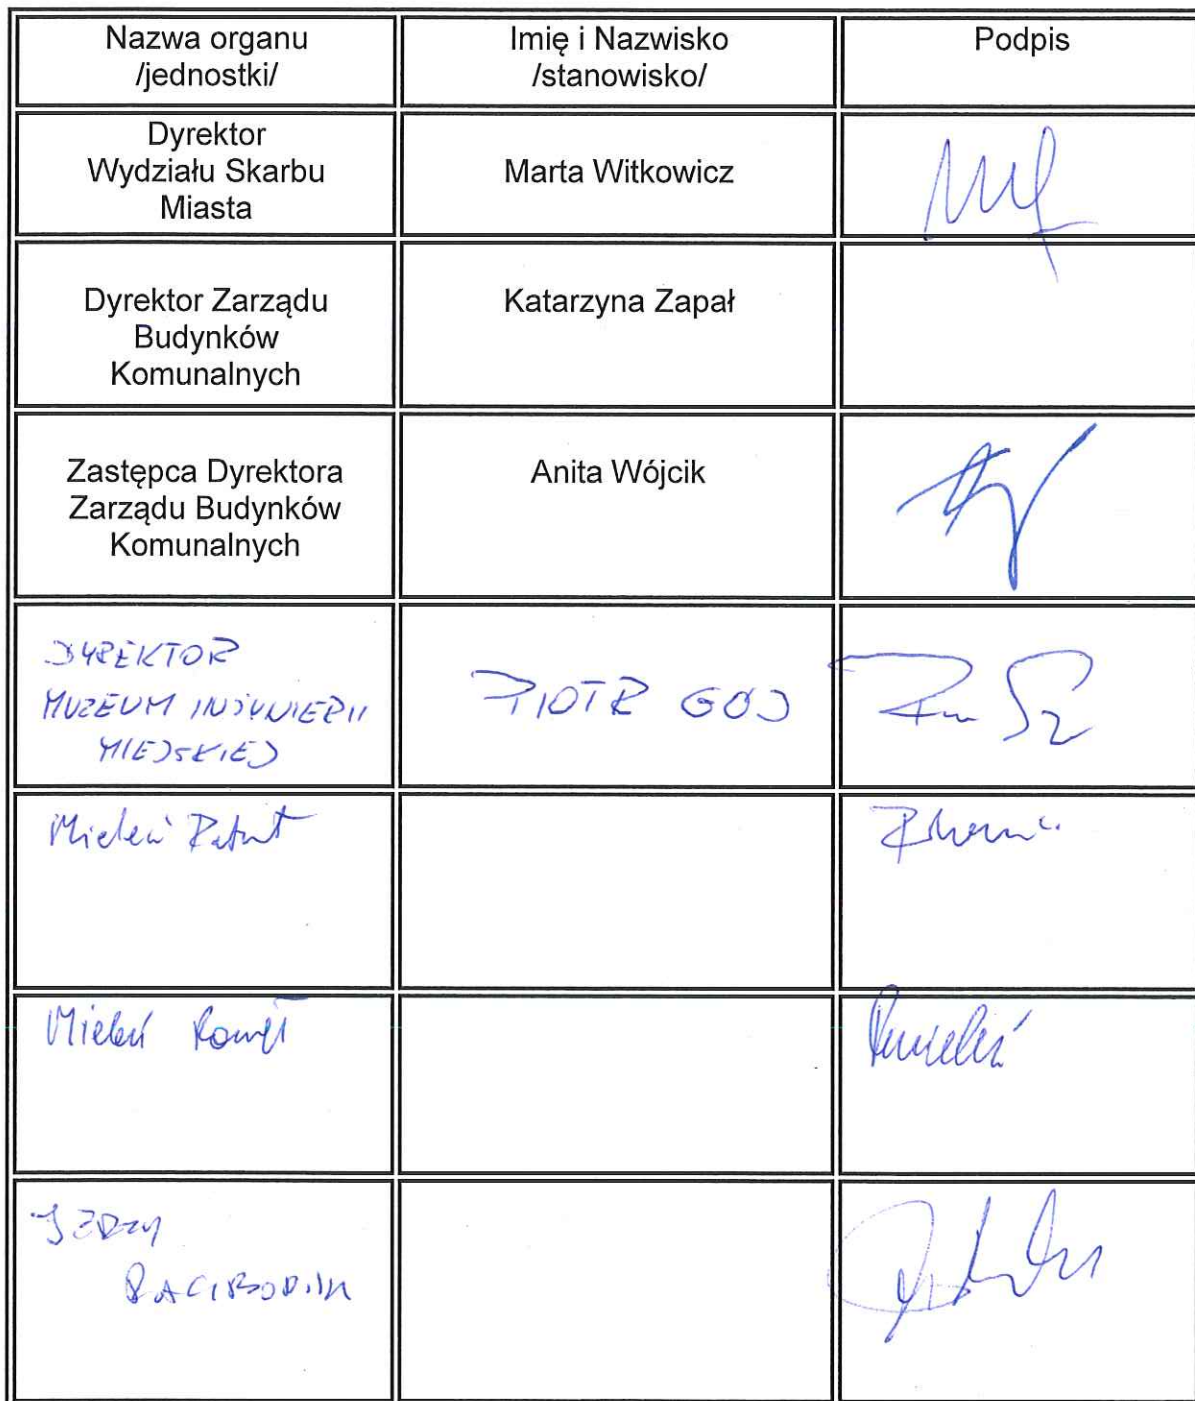 Nazwa organu
/jednostki/
Imię i Nazwisko
/stanowisko/
Podpis
Dyrektor
Wydziału Skarbu
Miasta
Marta Witkowicz
Dyrektor Zarządu
Budynków
Komunalnych
Katarzyna Zapał
Zastępca Dyrektora
Zarządu Budynków
Komunalnych
Anita Wójcik
DYREKTOR
MUZEUM INŻYNIERII
MIEJSKIEJ
PIOTR GÓJ
Mieleń
Mieleń
JERZY